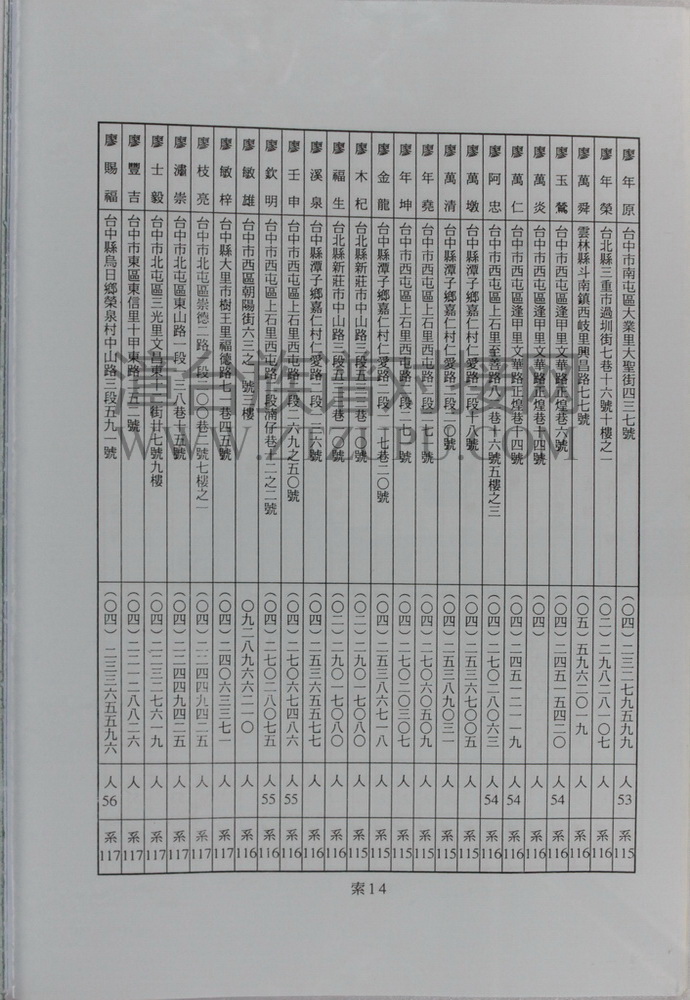 廖年原 台中市南屯區大業里大聖街四三七號 (〇四)二三二七九五九九 人53 系115
廖年榮 台北縣三重市過圳街七巷十六號十樓之一 (〇二)二九八二八一〇七 人 系116
廖萬舜 雲林縣斗南鎮西岐里興昌路七七號 (〇五)五九六二〇一九 人 系116
廖玉鶯 台中市西屯區逢甲里文華路正煌巷六號 (〇四)二四五一五四二〇 人54 系116
廖萬炎 台中市西屯區逢甲里文華路正煌巷十四號 (〇四) 人 系116
廖萬仁 台中市西屯區逢甲里文華路正煌巷十四號 (〇四)二四五一二一一九 人54 系116
廖阿忠 台中市西屯區上石里至善路八二巷十六號五樓之三 (〇四)二七〇二八〇六三 人54 系116
廖萬墩 台中縣潭子鄉嘉仁村仁愛路一段十八號 (〇四)二五三六七〇〇五 人 系115
廖萬清 台中縣潭子鄉嘉仁村仁愛路一段二〇號 (〇四)二五三八九〇三一 人 系115
廖年堯 台中市西屯區上石里西屯路二段二一七號 (〇四)二七〇六〇五〇九 人 系115
廖年坤 台中市西屯區上石里西屯路二段二一七號 (〇四)二七〇二〇三〇七 人 系115
廖金龍 台中縣潭子鄉嘉仁村仁愛路一段一七巷二〇號 (〇四)二五三八六七一八 人 系115
廖木杞 台北縣新莊市中山路三段五二巷一〇號 (〇二)二九〇一七〇八〇 人 系115
廖福生 台北縣新莊市中山路三段五二巷一〇號 (〇二)二九〇一七〇八〇 人 系116
廖溪泉 台中縣潭子鄉嘉仁村仁愛路一段二六號 (〇四)二五三六五五七七 人 系116
廖壬申 台中市西屯區上石里西屯路二段二六九之五〇號 (〇四)二七〇六七四八六 人55 系116
廖欽明 台中市西屯區上石里西屯路二段湳仔巷十二之二號 (〇四)二七〇二八〇七五 人55 系116
廖敏雄 台中市西區朝陽街六三之一號三樓 〇九二八九六六二一〇 人 系116
廖敏梓 台中縣大里市樹王里福德路七一巷四五號 (〇四)二四〇六三三七一 人 系117
廖枝亮 台中市北屯區崇德二路一段一〇〇巷二號七樓之一 (〇四)二二四四九四二五 人 系117
廖瀟崇 台中市北屯區東山路一段一一八巷十五號 (〇四)二二四四九四二五 人 系117
廖士毅 台中市北屯區三光里文昌東十一街廿七號九樓 (〇四)二二三二七六一九 人 系117
廖豐吉 台中市東區東信里十甲東路一五二號 (〇四)二二一二八八二六 人 系117
廖賜福 台中縣烏日鄉榮泉村中山路三段五九一號 (〇四)二三三六五五九六 人56 系117
索14
漳台族谱对接网
WWW.ZTZUPU.COM